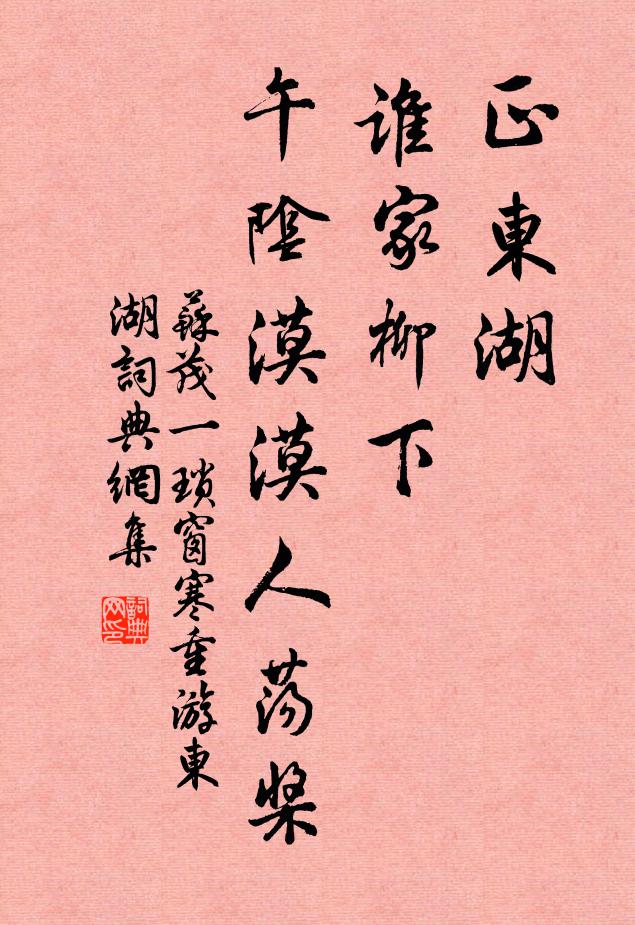 正東湖
誰家柳下
午陰漠漠人蕩槳
蘇茂一瑣窗寒重游東
湖詞典網集
詞典网印